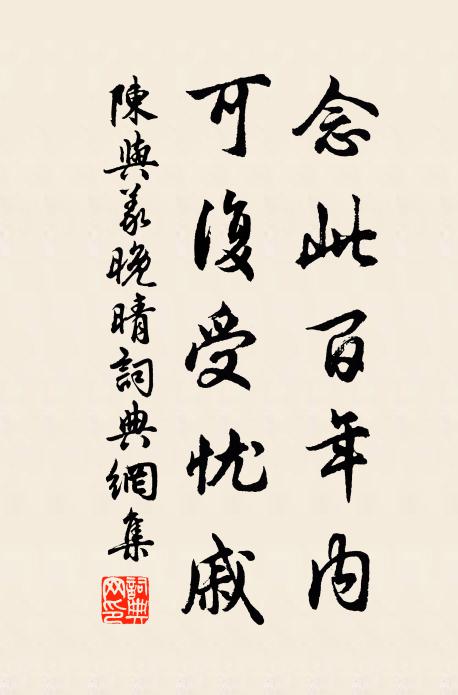 念此百年内
可復受忧戚
陳與義晚晴詞典網集
詞典网印